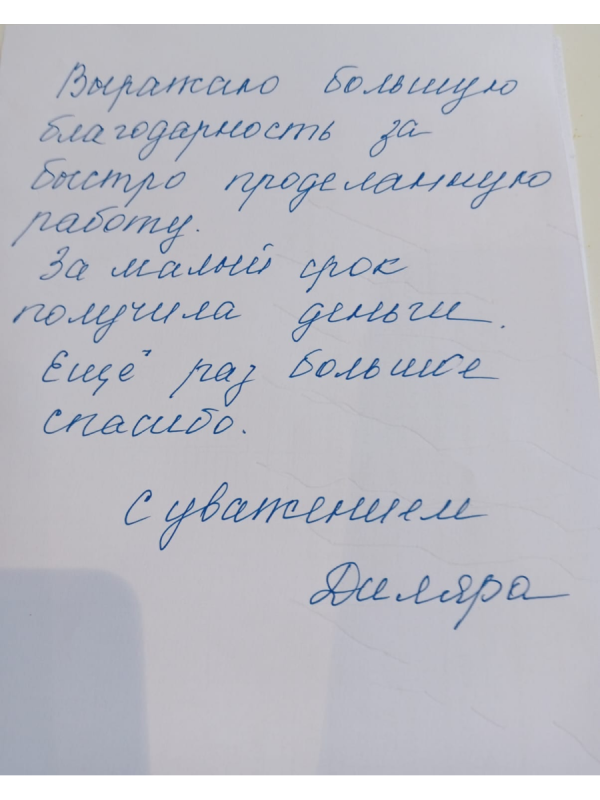 Выражаю большую
благодарность за
быстро проделанную
работу.
За малый срок
получила деньги.
Ещё раз большое
спасибо.
С уважением
Диляра